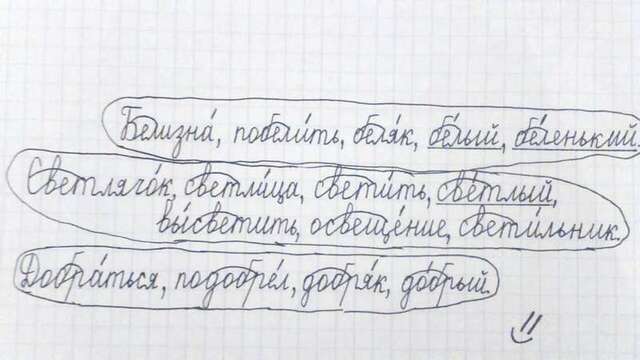 Белизна́, побели́ть, беля́к, бе́лый, бе́ленький.
Светлячо́к, светли́ца, свети́ть, све́тлый,
вы́светить, освеще́ние, свети́льник.
Добра́ться, подобре́л, добря́к, до́брый.